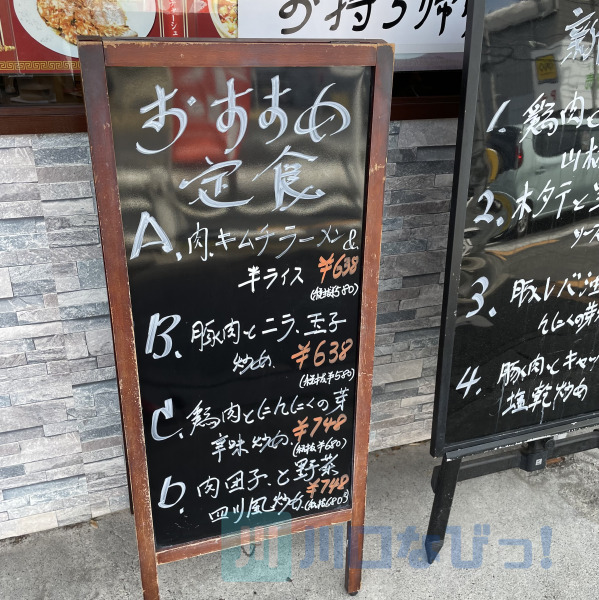 お持ち帰
おすすめ
定食
A. 肉、キムチラーメン&
半ライス ¥638
(税抜580)
B. 豚肉とニラ、玉子
炒め ¥638
(税抜¥580)
C. 鶏肉とにんにくの芽
辛味炒め、¥748
(税抜¥680)
D. 肉団子、と野菜
四川風炒め、¥748
(税抜680)
新
1. 鶏肉と
2. ホタテと
3. 豚レバ
にんにくの芽
4. 豚肉とキャ
塩乾炒め
川口なびっ!